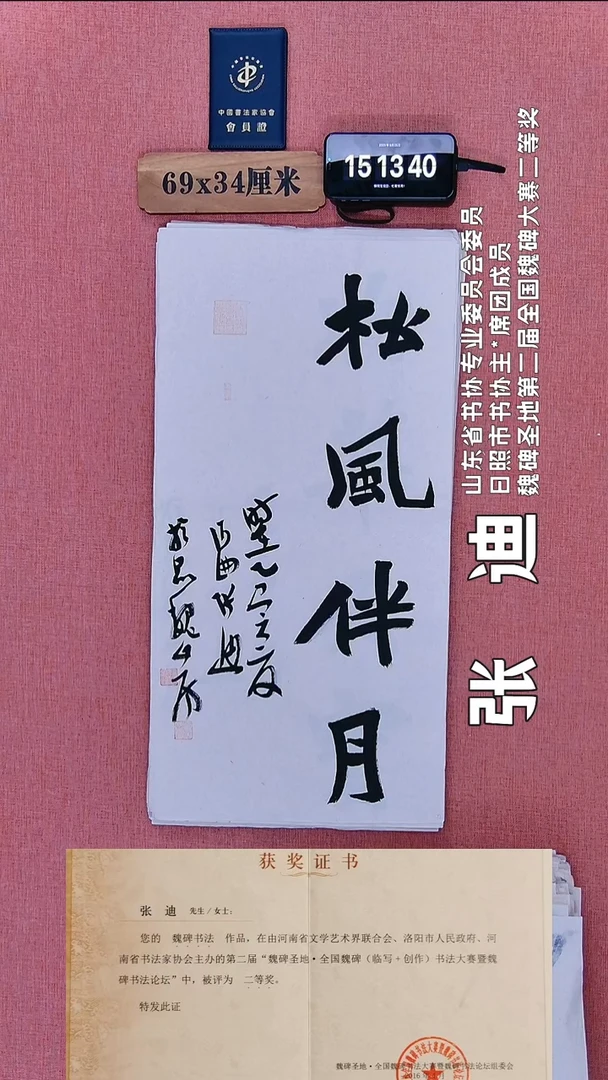 中國書法家協會
會員證
69x34厘米
15 13 40
松風伴月
張迪
山东省书协专业委员会委员
日照市书协主*席团成员
魏碑圣地第二届全国魏碑大赛二等奖
张 迪
获奖证书
张 迪 先生/女士:
您的 魏碑书法 作品,在由河南省文学艺术界联合会、洛阳市人民政府、河
南省书法家协会主办的第二届“魏碑圣地·全国魏碑(临写+创作)书法大赛暨魏
碑书法论坛”中,被评为 二等奖。
特发此证
魏碑圣地·全国魏碑书法大赛暨魏碑书法论坛组委会